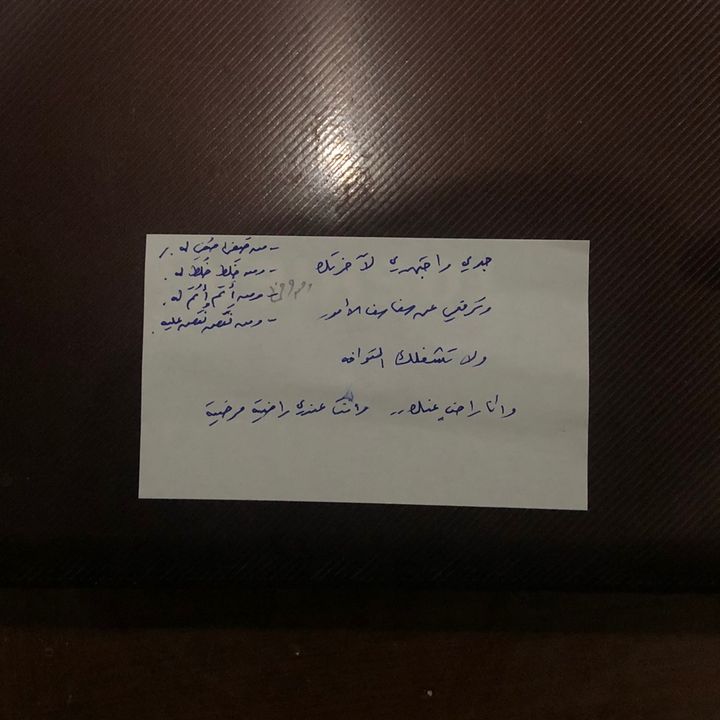 - من صفى صُفي له .
- ومن خَلط خُلط له .
- ومن أتم أُتم له .
- ومن نقص نُقص عليه .
جدي واجتهدي لآخرتك
وترقي عن سفاسف الامور
ولا تشغلك التوافه
وأنا راضٍ عنك .. وانت عندي راضية مرضية